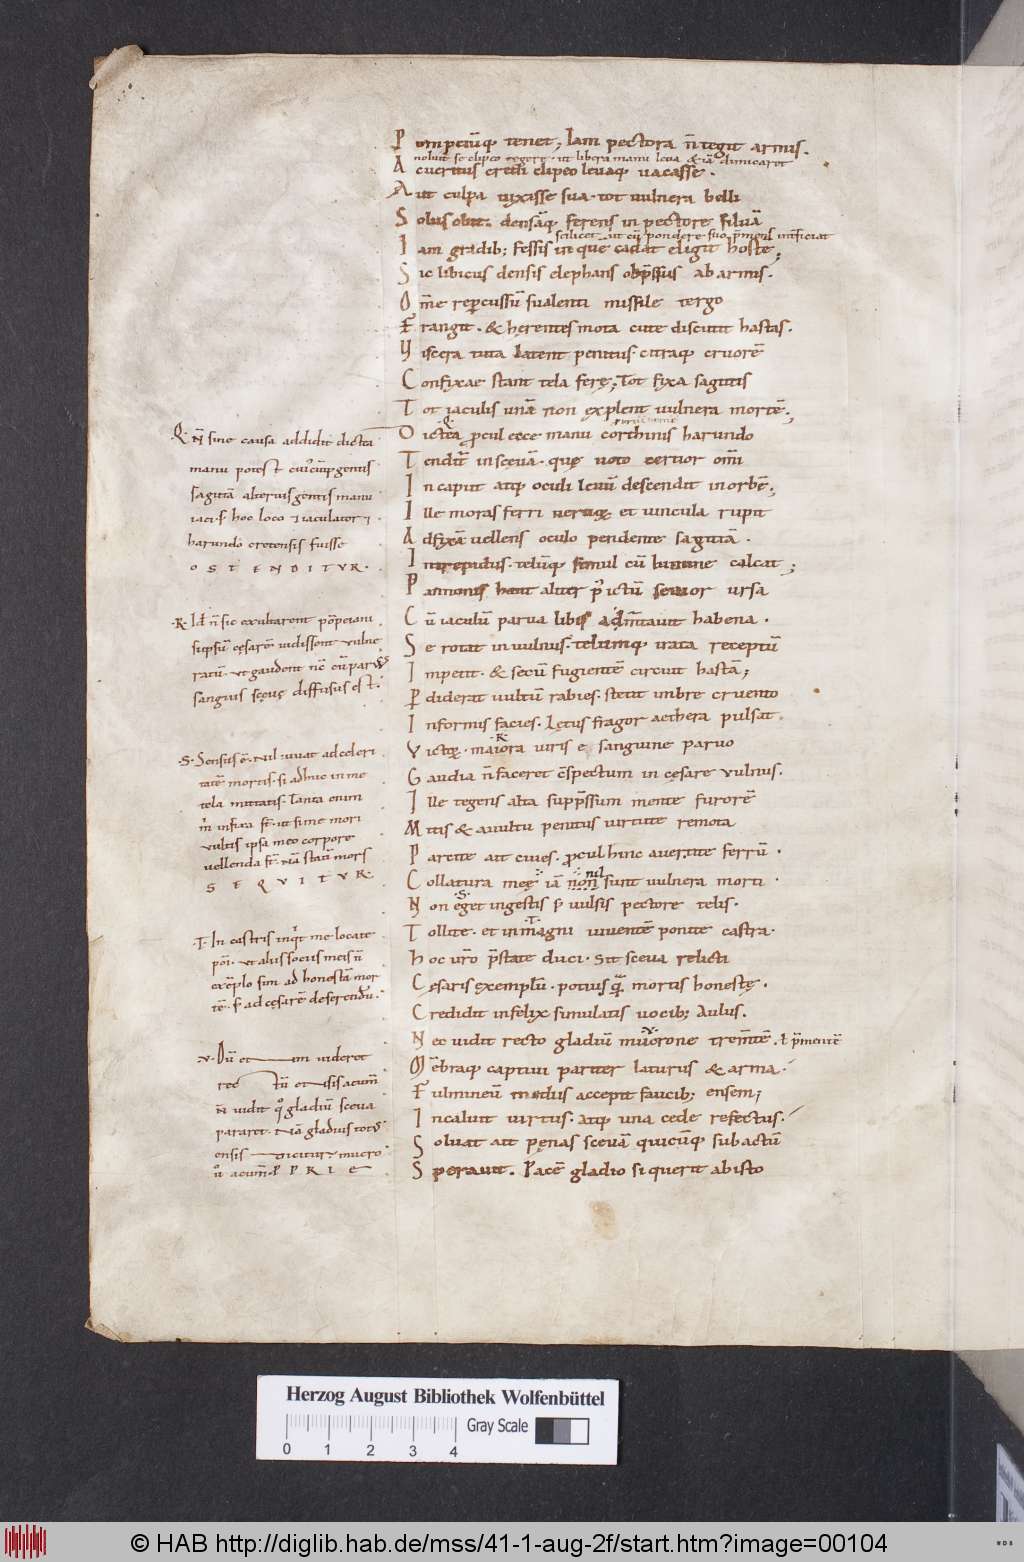 Pompeiūq; tenet; Iam pectora ñ tegit armis.
noluit se clipeo tegere · ut libera manu leua & iā dimicaret
Ac ueritus credi clipeo leuaq; uacasse ·
Aut culpa uixisse sua · tot uulnera belli
Solus obit. densāq; ferens in pectore siluā
scilicet ut cū pondere suo p̄mens interficiat
Iam gradib; fessis in quē cadat eligit hostē;
Sic libicus densis elephans opp̄ssus ab armis.
Om̄e repercussū sualenti missile tergo
Frangit · & herentes mota cute discutit hastas.
Viscera tuta latent penitus citraq; cruorē
Confixae stant tela ferę; Tot fyxa sagittis
Tot iaculis unā non explent uulnera mortē;
Dictęa procul ecce manu corthinis harundo
Tendit̄ in scęuā · quę uoto certior om̄i
In caput atq; oculi leuū descendit in orbē;
Ille moras ferri neruoq; et uincula rupit
Adfyxā uellens oculo pendente sagittā ·
Intrepidus · telūq; simul cū lumine calcat;
Pannonis haut aliter p̄ ictū seuior ursa
Cū iaculū parua libis adm̄tauit habena ·
Se rotat in uulnus · telumq; irata receptū
Impetit · & secū fugientē circuit hastā;
Pdiderat uultū rabies · stetit imbre cruento
Informis facies · Lętus fragor aethera pulsat ·
Victoę · maiora uiris e sanguine paruo
Gaudia ñ faceret c̄spectum in cęsare uulnus.
Ille tegens alta supp̄ssum mente furorē
Mitis & a uultu penitus uirtute remota
Parcite ait ciues · procul hinc auertite ferrū ·
nil
Collatura meę iā non sunt uulnera morti ·
Non eget ingestis s; uulsis pectore telis ·
Tollite · et in magni uiuentē ponite castra ·
Hoc ur̄o p̄state duci · sit sceua relicti
Cęsaris exemplū · potius quā mortis honestę ·
Credidit infelix simulatis uocib; Aulus.
Nec uidit recto gladiū mucrone trem̄tē. ł p̄mentē
Mēbraq; captiui pariter laturus & arma ·
Fulmineū medius accepit faucib; ensem;
Incaluit uirtus · atq; una cede refectus ·
Soluat ait pęnas sceuā quicūq; subactū
Sperauit. Pacē gladio si querit ab isto
·Q· ñ sine causa addidit dictea
manu potest
sagittā alterius gentis manu
iaci s; hoc loco iaculatori
harundo cretensis fuisse
OSTENDITVR ·
·R· Id ñ sic exultarent pōpeiani
si ipsū cęsarē uidissent uulne
ratū · ut gaudent nc̄ cū paruus
sanguis scęuę diffusus est ·
·S· Sensus ē · nil iuuat ad celeri
tatē mortis · si adhuc in me
tela mittatis · Tanta enim
uultis ipsa meo corpore
uellenda st̄ nā statī mors
SEQVITVR
·T· In castris inquit me locate
pōi · ut alius socius meis ñ
exēplo sim ad honestā mor
tē · s; ad cęsarē deserendū ·
·V· Dū et—im uideret
rec—tū et
ñ uidit qđ gladiū sceua
pararet · Nā gladius totus
ensis dicitur mucro
ū acumē PPRIE
Herzog August Bibliothek Wolfenbüttel
Gray Scale
0 1 2 3 4
© HAB http://diglib.hab.de/mss/41-1-aug-2f/start.htm?image=00104